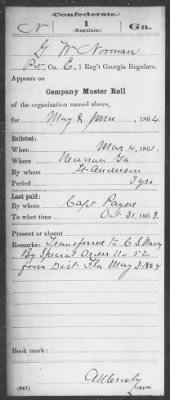 Confederate.
N
1
(Regulars.)
Ga.
G W Norman
Pvt, Co. E, 1 Reg't Georgia Regulars.
Appears on
Company Muster Roll
of the organization named above,
for May & June, 1864.
Enlisted:
When Mar 4, 1861.
Where Newnan Ga
By whom Lt Anderson
Period 3 yrs
Last paid:
By whom Capt Payne
To what time Oct 31, 1863.
Present or absent
Remarks: Transferred to C S Navy
By Special Order No 52
from Dist Fla May 3-1864
Book mark:
(642)
Copyist.